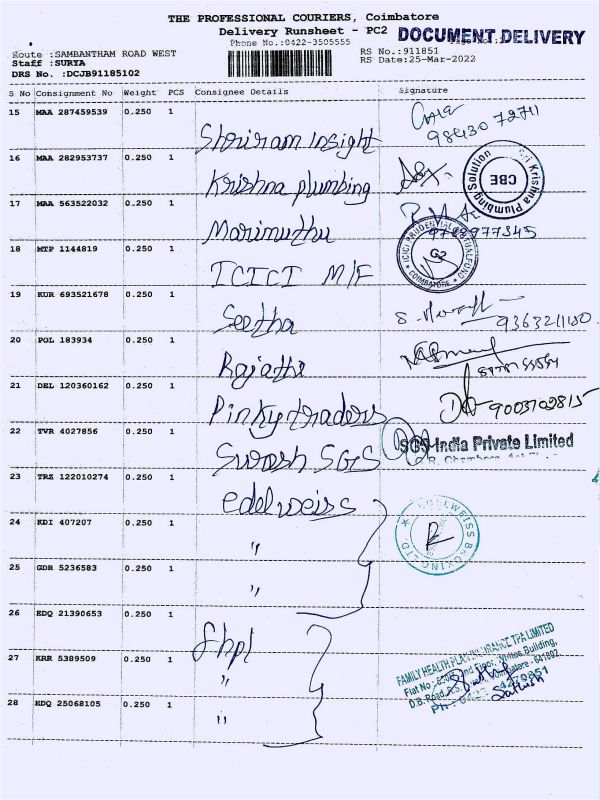 THE PROFESSIONAL COURIERS, Coimbatore
Delivery Runsheet - PC2 DOCUMENT DELIVERY
Phone No.:0422-3505555
Route :SAMBANTHAM ROAD WEST RS No.:911851
Staff :SURYA RS Date:25-Mar-2022
DRS No. :DCJB91185102
S No Consignment No Weight PCS Consignee Details Signature
15 MAA 287459539 0.250 1 Shriram Insight 98430 72711
16 MAA 282953737 0.250 1 Krishna plumbing
Sri Krishna Plumbing Solution CBE
17 MAA 563522032 0.250 1 Marimuthu
18 MTP 1144819 0.250 1 ICICI M/F
ICICI PRUDENTIAL MUTUAL FUND COIMBATORE
19 KUR 693521678 0.250 1 Seetha 9363211180
20 POL 183934 0.250 1 Rajathi
21 DEL 120360162 0.250 1 Pinky traders 9003702815
22 TVR 4027856 0.250 1 Swash SGS
SGS India Private Limited
23 TRZ 122010274 0.250 1 edelweiss
EDELWEISS BROKING LTD
24 KDI 407207 0.250 1 "
25 GDR 5236583 0.250 1 "
26 EDQ 21390653 0.250 1 fhpl
27 KRR 5389509 0.250 1 "
28 EDQ 25068105 0.250 1 "
FAMILY HEALTH PLAN INSURANCE TPA LIMITED
Floor, Building,
D.B. Road, R.S. Coimbatore - 641002
Sathish